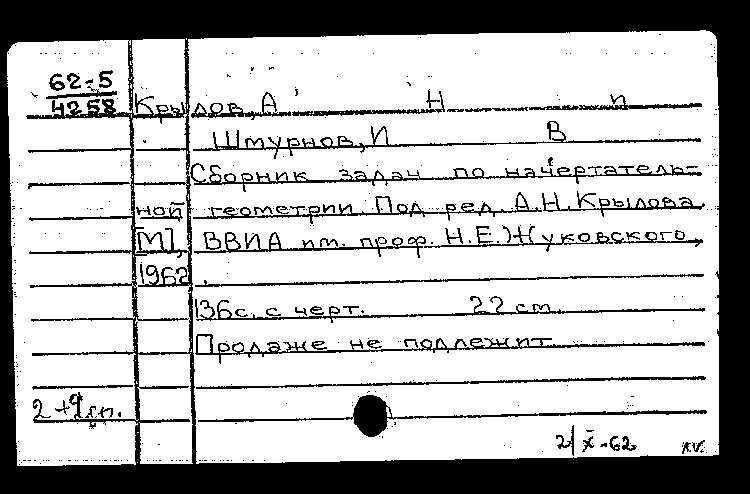 62-5
4258 Крылов, А Н п
Штурнов, И В
Сборник задач по начертатель-
ной геометрии. Под ред. А.Н.Крылова.
[М], ВВИА им. проф. Н.Е.Жуковского,
1962.
136с. с черт. 22 см
Продаже не подлежит
2 +
2/X-62